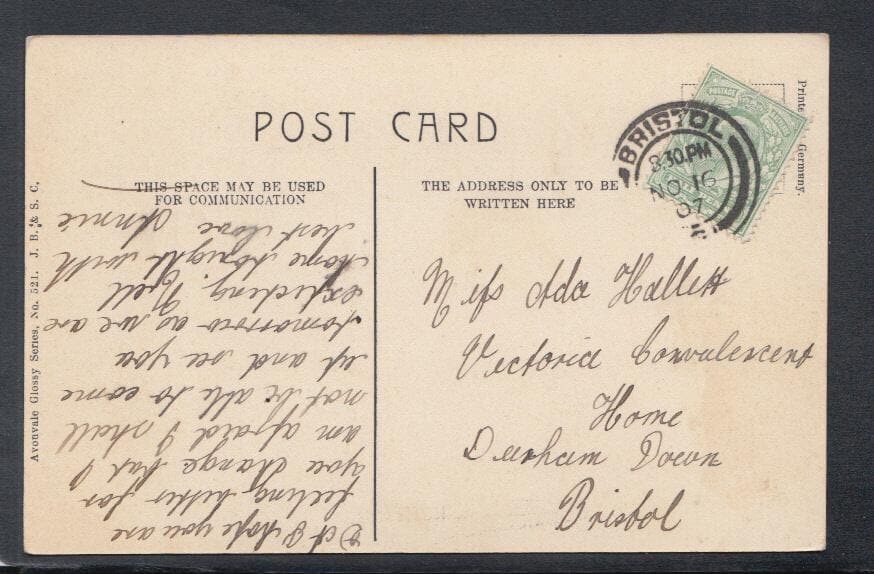 POST CARD
THIS SPACE MAY BE USED
FOR COMMUNICATION
THE ADDRESS ONLY TO BE
WRITTEN HERE
BRISTOL
8.30.PM
NO 16
07
POSTAGE
Printed Germany.
Avonvale Glossy Series, No. 521. J. B. & S. C.
Miss Ada Hallett
Victoria Convalescent
Home
Durham Down
Bristol
I hope you are
feeling better for
you change but I
am afraid I shall
not be able to come
up and see you
tomorrow as we are
expecting Nell
home tonight with
best love Annie